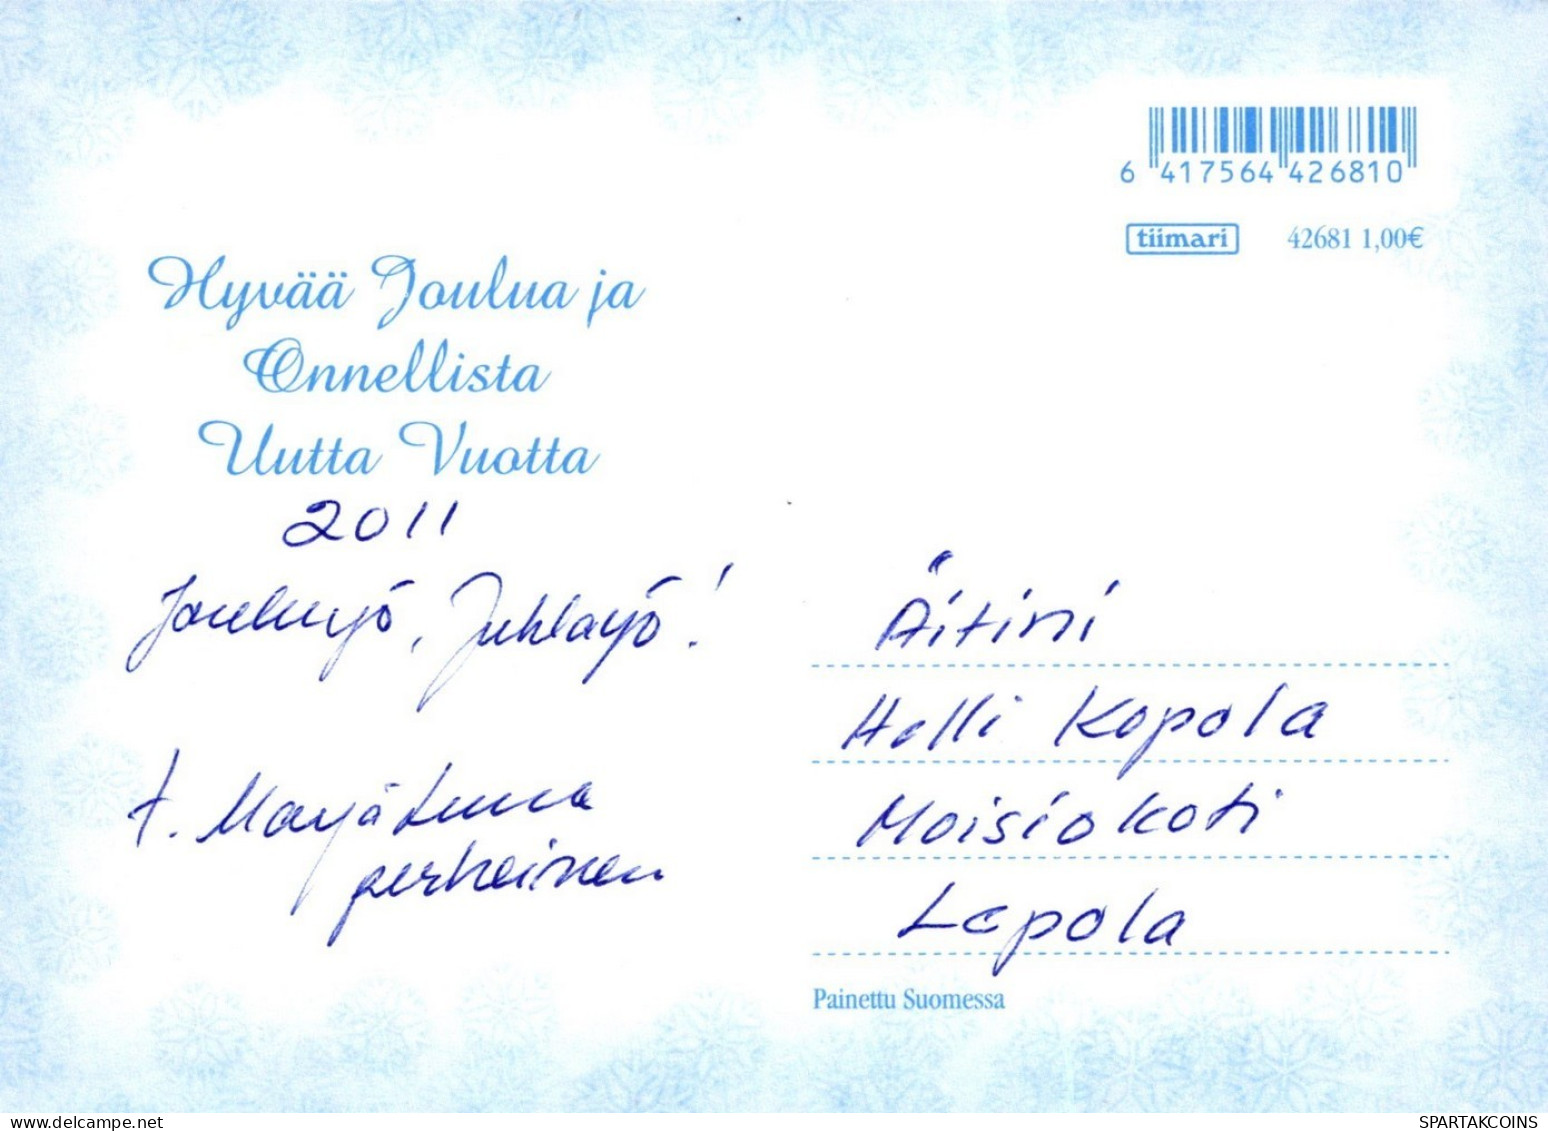 6 417564 426810
tiimari 42681 1,00€
Hyvää Joulua ja
Onnellista
Uutta Vuotta
2011
Jouluyö, Juhlayö!
t. Marjatuuna
perheineen
Äitini
Helli Kopola
Moisiokoti
Lapola
Painettu Suomessa
SPARTAKCOINS